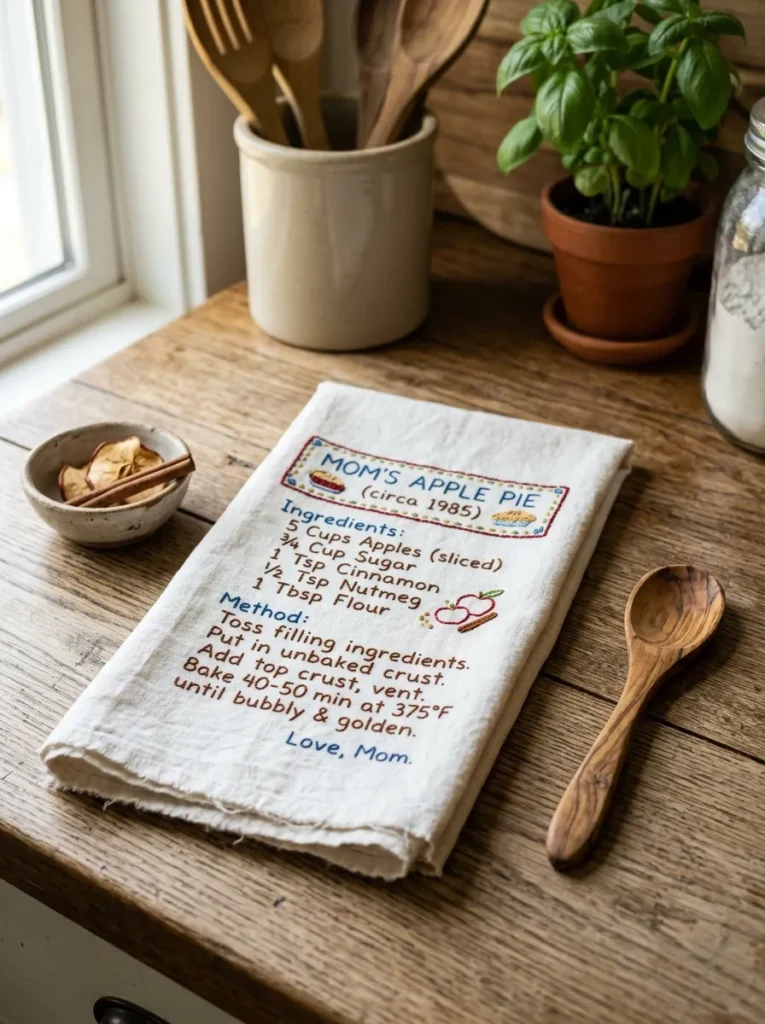 MOM'S APPLE PIE
(circa 1985)
Ingredients:
5 Cups Apples (sliced)
¾ Cup Sugar
1 Tsp Cinnamon
½ Tsp Nutmeg
1 Tbsp Flour
Method:
Toss filling ingredients.
Put in unbaked crust.
Add top crust, vent.
Bake 40-50 min at 375°F
until bubbly & golden.
Love, Mom.